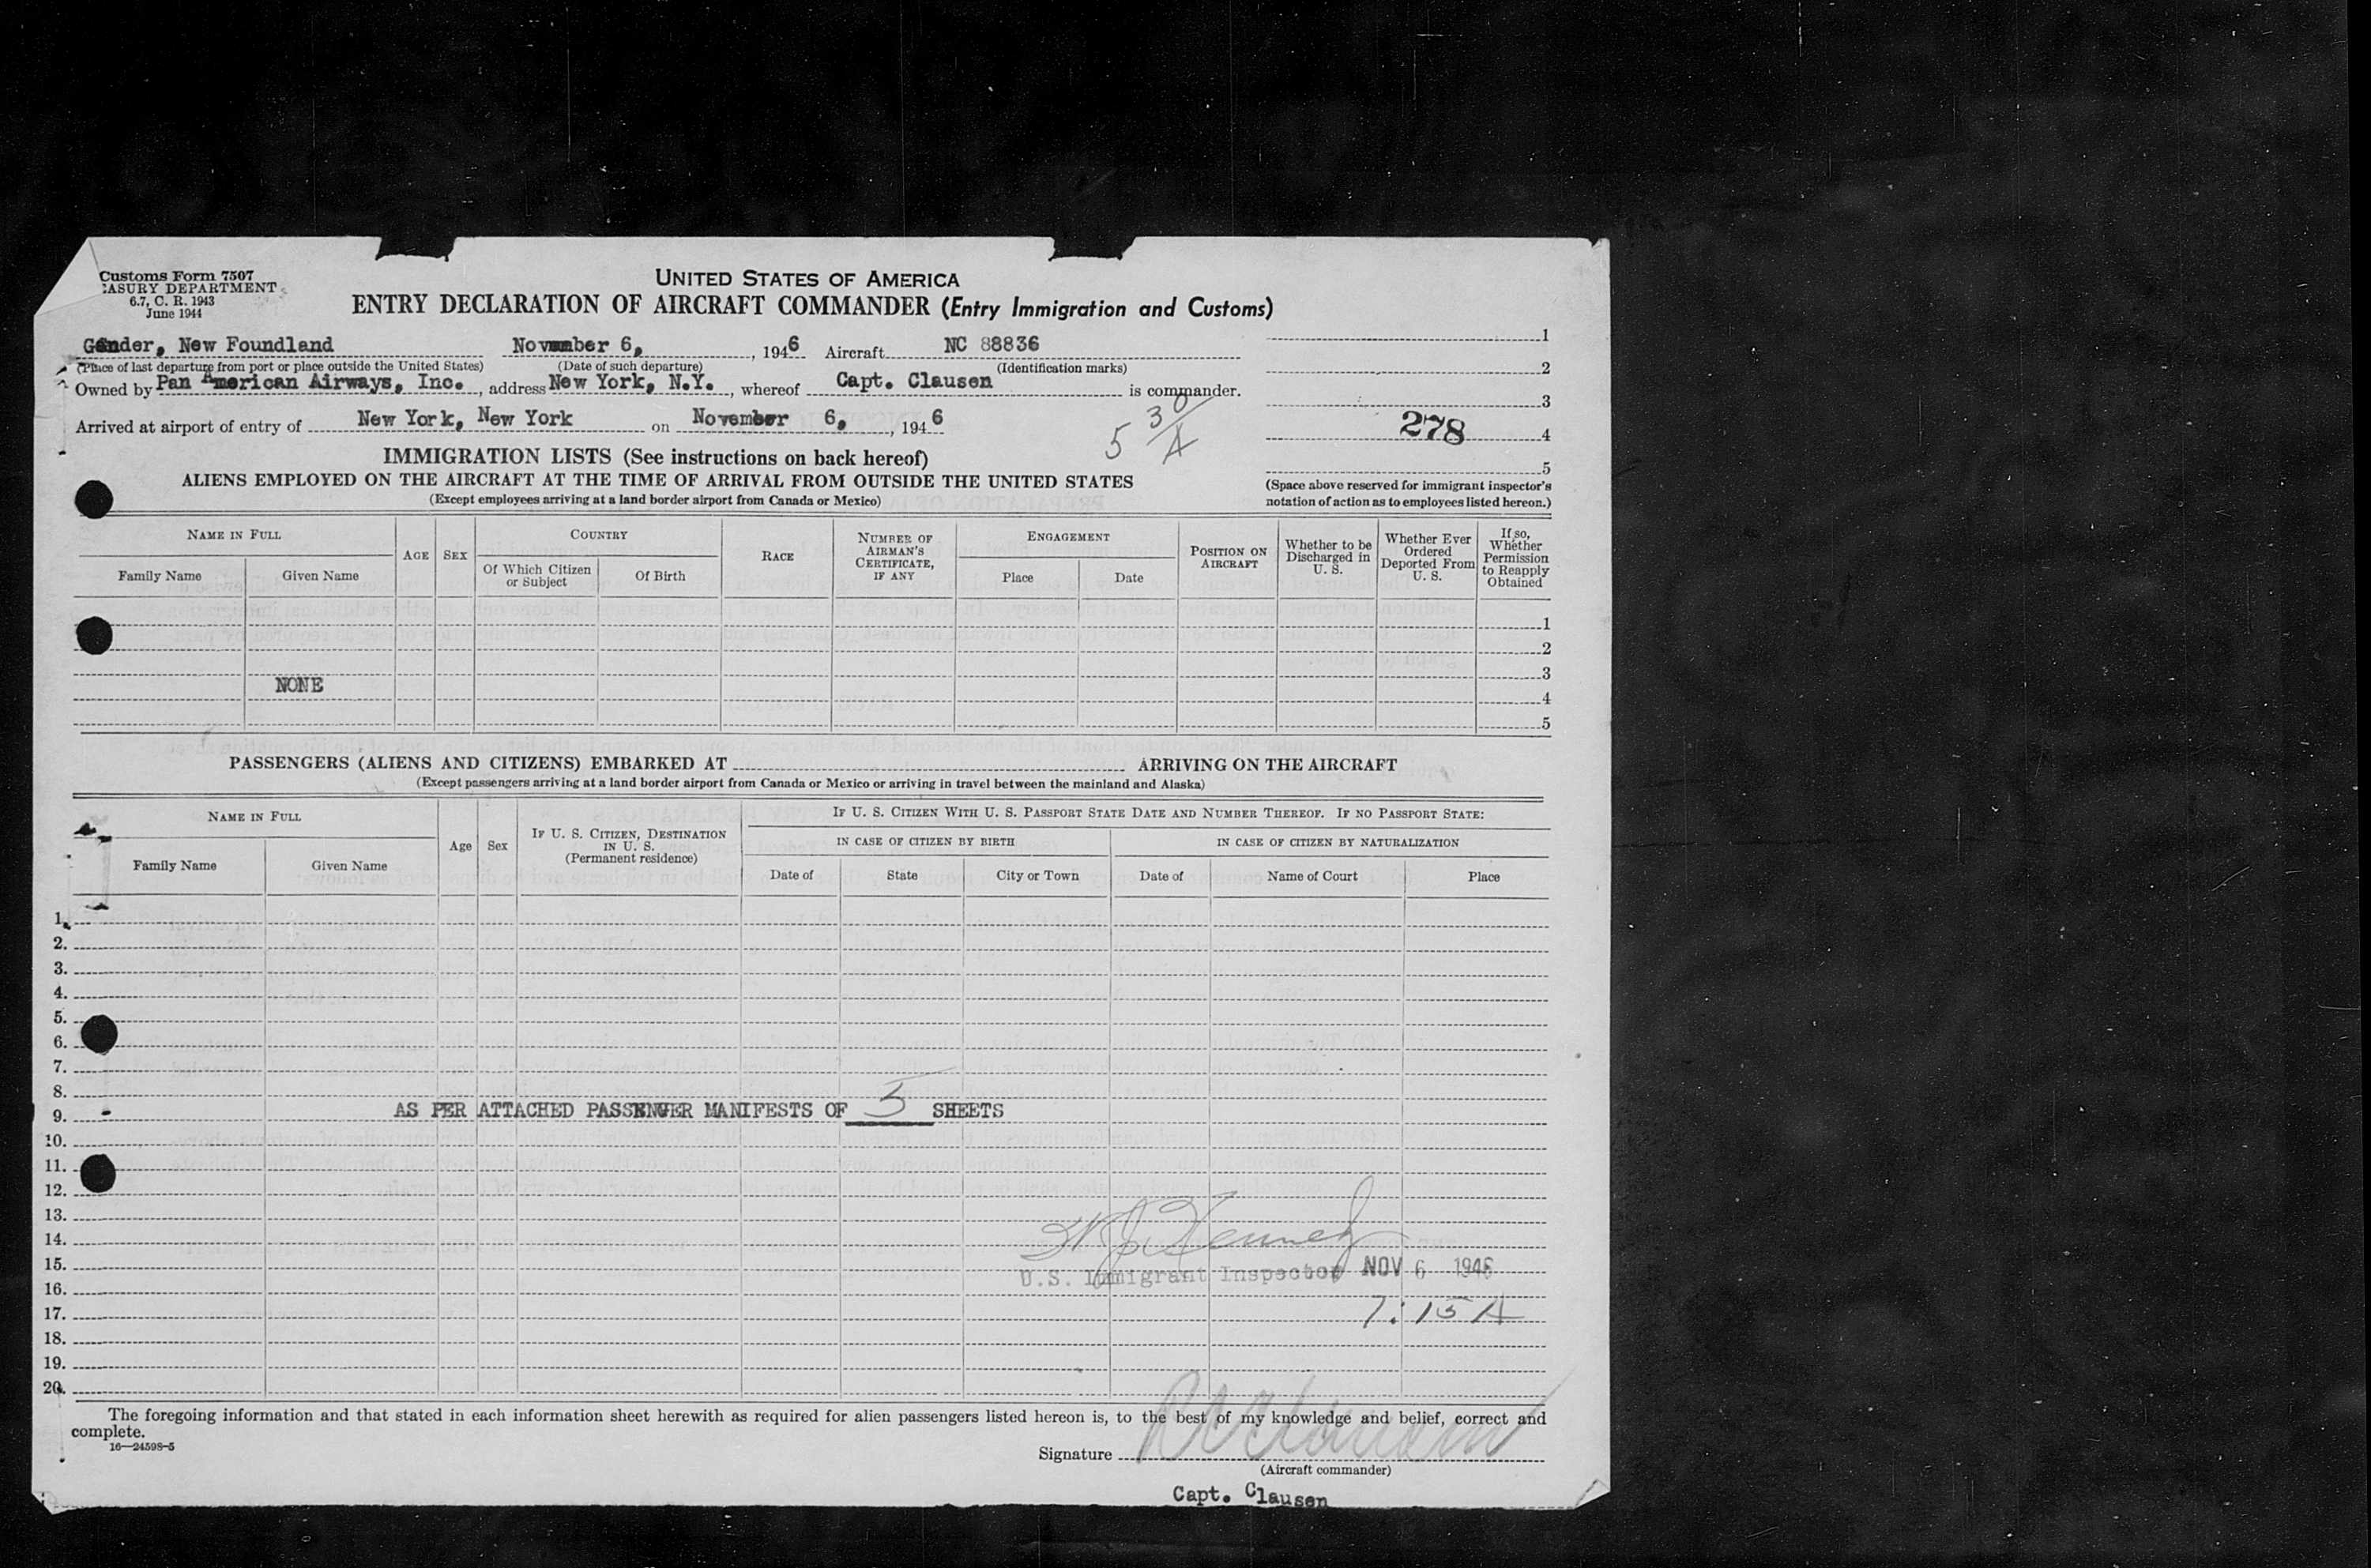 Customs Form 7507
ASURY DEPARTMENT
6.7, C. R. 1943
June 1944
UNITED STATES OF AMERICA
ENTRY DECLARATION OF AIRCRAFT COMMANDER (Entry Immigration and Customs)
Gander, New Foundland November 6, , 1946 Aircraft NC 88836
(Place of last departure from port or place outside the United States) (Date of such departure) (Identification marks)
Owned by Pan American Airways, Inc. , address New York, N.Y. , whereof Capt. Clausen is commander.
Arrived at airport of entry of New York, New York on November 6, , 1946
5 30/A
1
2
3
278 4
5
(Space above reserved for immigrant inspector's
notation of action as to employees listed hereon.)
IMMIGRATION LISTS (See instructions on back hereof)
ALIENS EMPLOYED ON THE AIRCRAFT AT THE TIME OF ARRIVAL FROM OUTSIDE THE UNITED STATES
(Except employees arriving at a land border airport from Canada or Mexico)
NAME IN FULL
Family Name Given Name
AGE SEX
COUNTRY
Of Which Citizen or Subject Of Birth
RACE
NUMBER OF AIRMAN'S CERTIFICATE, IF ANY
ENGAGEMENT
Place Date
POSITION ON AIRCRAFT
Whether to be Discharged in U. S.
Whether Ever Ordered Deported From U. S.
If so, Whether Permission to Reapply Obtained
1
2
3
NONE
4
5
PASSENGERS (ALIENS AND CITIZENS) EMBARKED AT ARRIVING ON THE AIRCRAFT
(Except passengers arriving at a land border airport from Canada or Mexico or arriving in travel between the mainland and Alaska)
NAME IN FULL
Family Name Given Name
Age Sex
IF U. S. CITIZEN, DESTINATION IN U. S. (Permanent residence)
IF U. S. CITIZEN WITH U. S. PASSPORT STATE DATE AND NUMBER THEREOF. IF NO PASSPORT STATE:
IN CASE OF CITIZEN BY BIRTH IN CASE OF CITIZEN BY NATURALIZATION
Date of State City or Town Date of Name of Court Place
1.
2.
3.
4.
5.
6.
7.
8.
9. AS PER ATTACHED PASSENGER MANIFESTS OF 5 SHEETS
10.
11.
12.
13.
14.
15. U.S. Immigrant Inspector NOV 6 1946
16.
17. 7:15 A
18.
19.
20.
The foregoing information and that stated in each information sheet herewith as required for alien passengers listed hereon is, to the best of my knowledge and belief, correct and
complete.
16—24598-5
Signature
(Aircraft commander)
Capt. Clausen